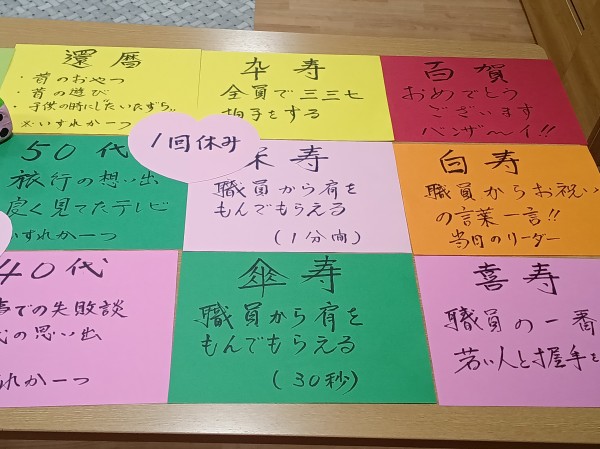 還暦
・昔のおやつ
・昔の遊び
・子供の時にしたいたずら!!
※いずれか一つ
卆寿
全員で三三七
拍手をする
百賀
おめでとう
ございます
バンザ〜イ!!
50代
旅行の想い出
良く見てたテレビ
いずれか一つ
1回休み
米寿
職員から肩を
もんでもらえる
(1分間)
白寿
職員からお祝い
の言葉一言!!
当日のリーダー
40代
での失敗談
代の思い出
れか一つ
傘寿
職員から肩を
もんでもらえる
(30秒)
喜寿
職員の一番
若い人と握手を